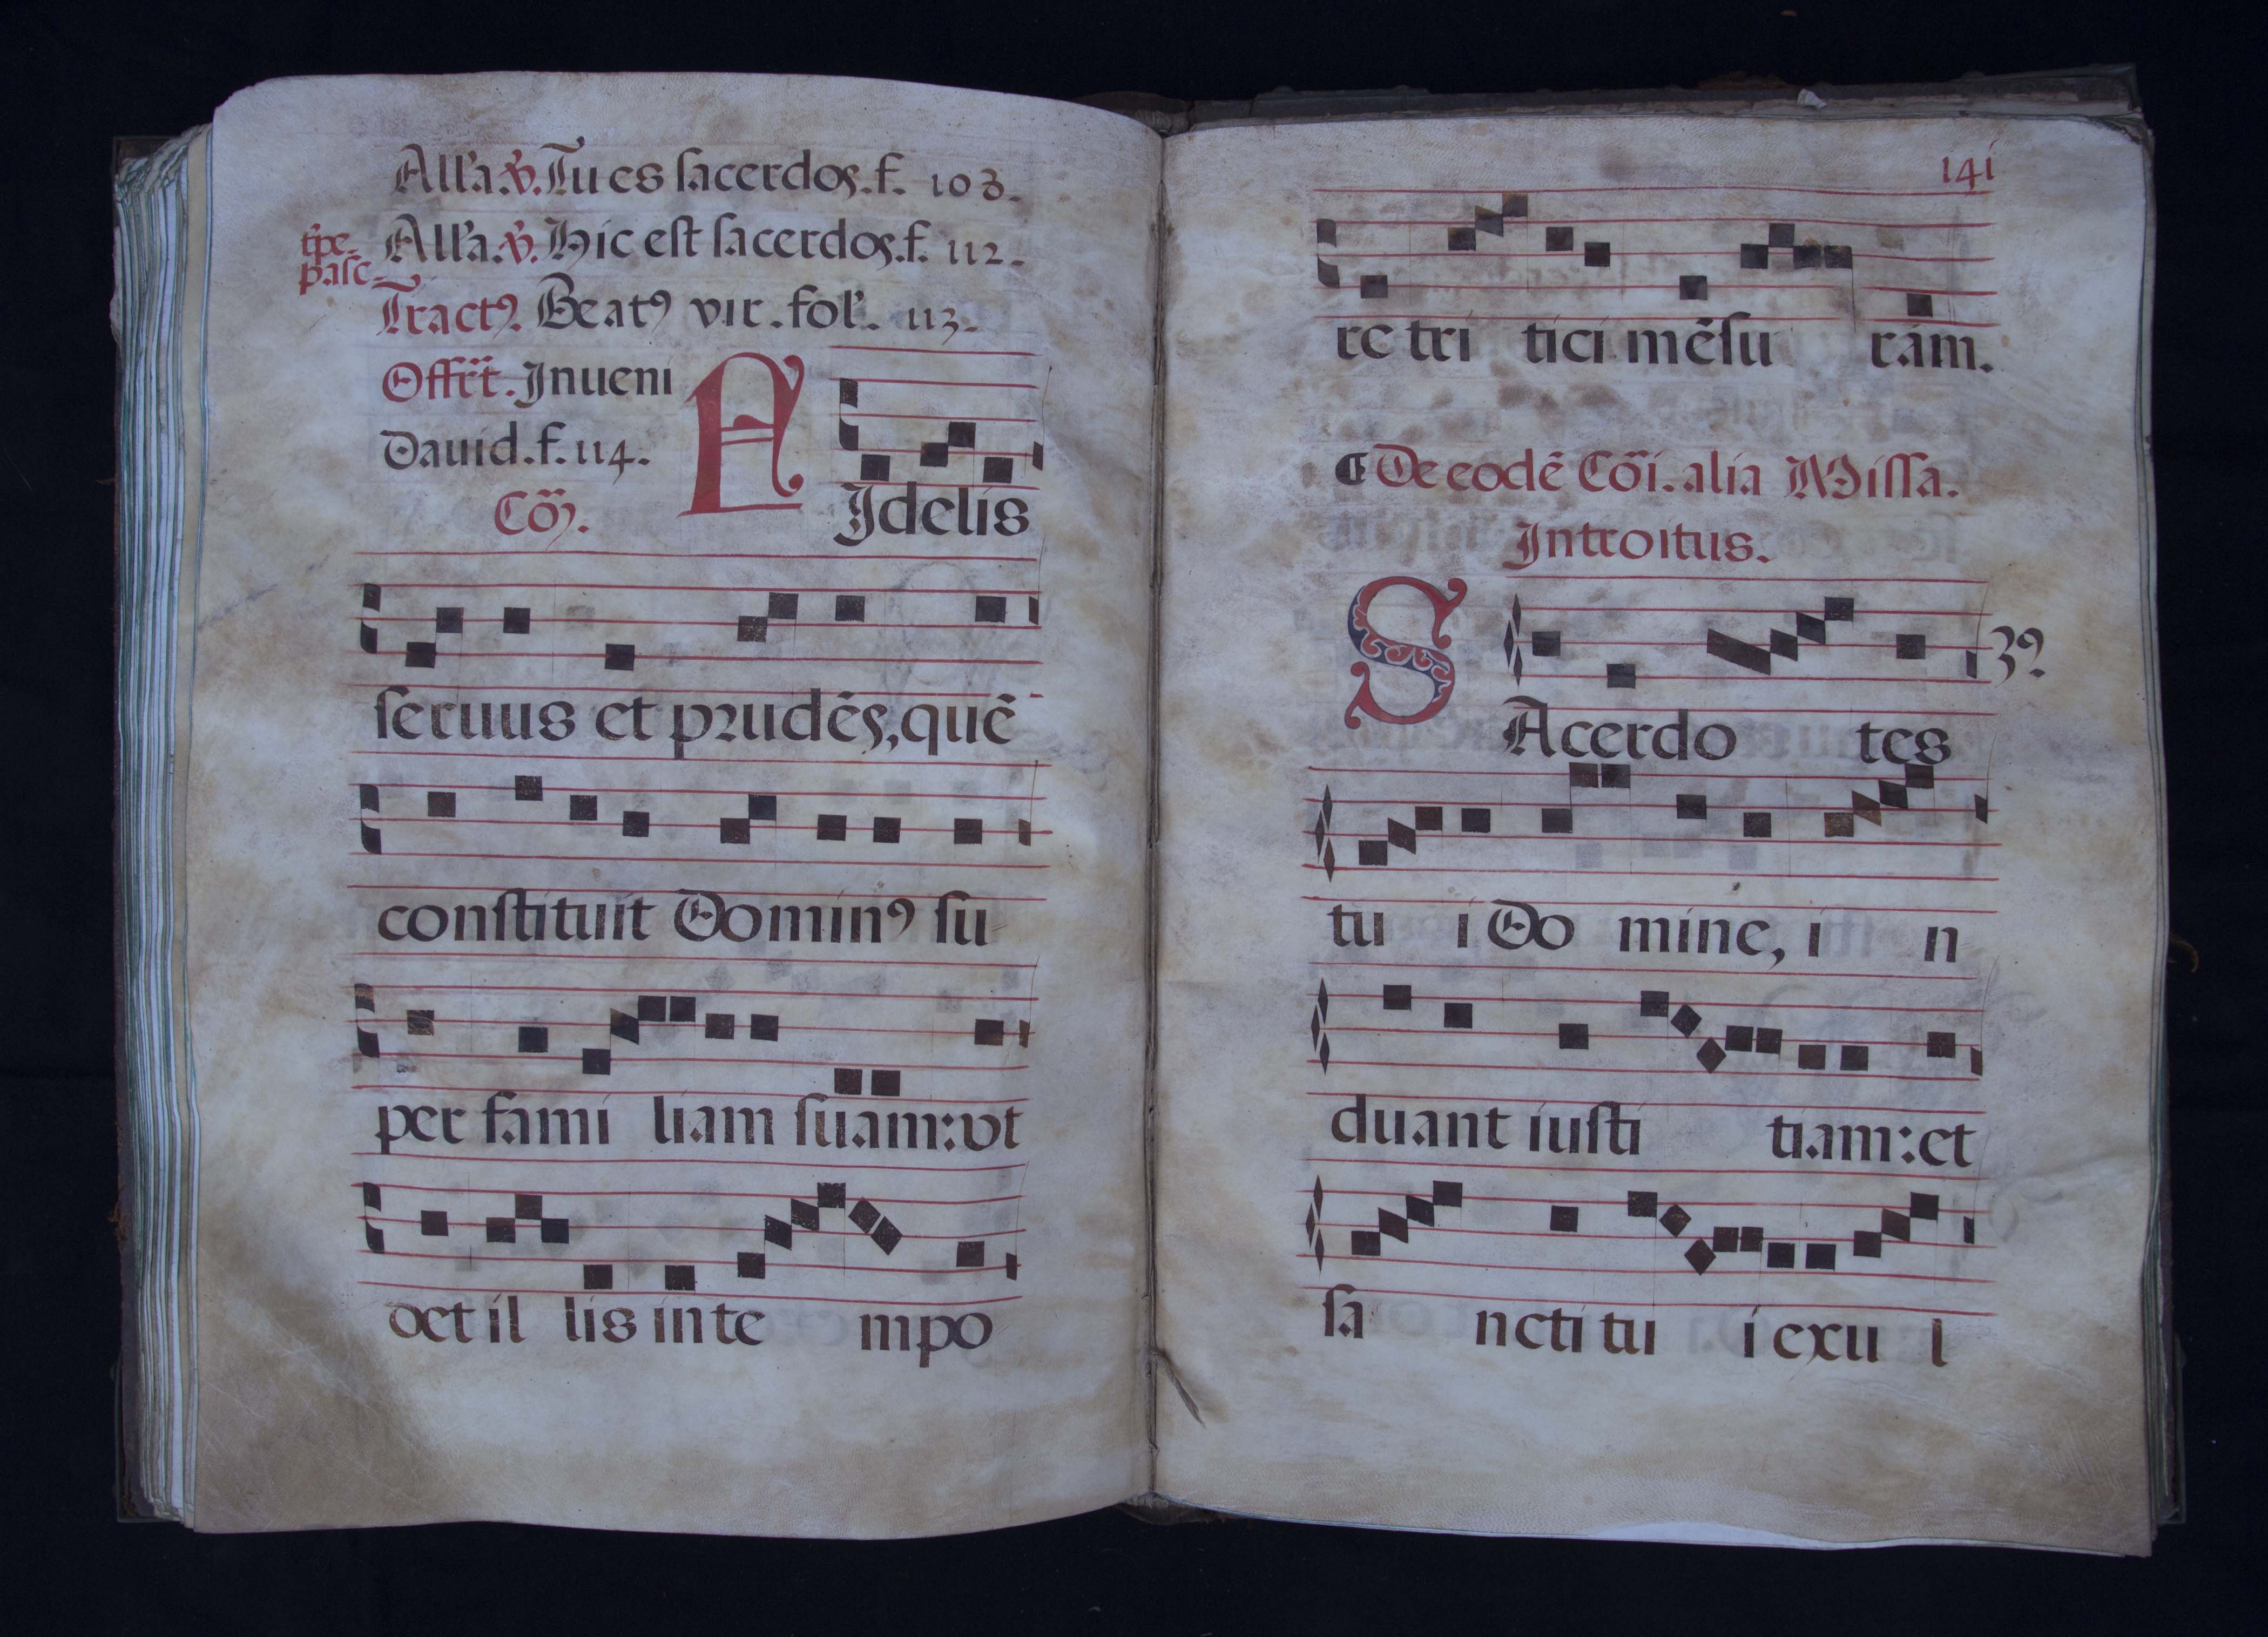 All'a. ꝟ. Tu es sacerdos. f. 103.
Tp̃e pasc. All'a. ꝟ. Hic est sacerdos. f. 112.
Tractꝰ. Beatꝰ vir. fol'. 113.
Offr̃t. Jnueni
Dauid. f. 114.
Cõ.
FJdelis
ſeruus et prudẽs, quẽ
conſtituit Dominꝰ ſu
per fami liam ſuam: vt
det il lis in te mpo
141
re tri tici mẽſu ram.
¶ De eodẽ Cõi. alia Miſſa.
Introitus.
SAcerdo tes
3ꝰ
tu i Do mine, i n
duant iuſti tiam: et
ſa ncti tu i exu l